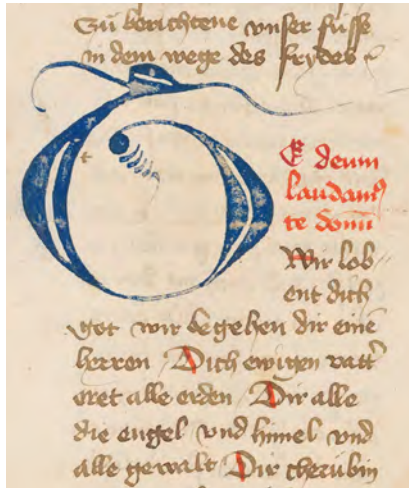 Zů berichtene vnser fusse
in dem wege des frydes
T
E deum
laudamꝰ
te domī
Wir lob
ent dich
got wir begehen dir einē
herren Dich ewigen vatt͛
eret alle erden Dir alle
die engel vnd himel vnd
alle gewalt Dir cherubin